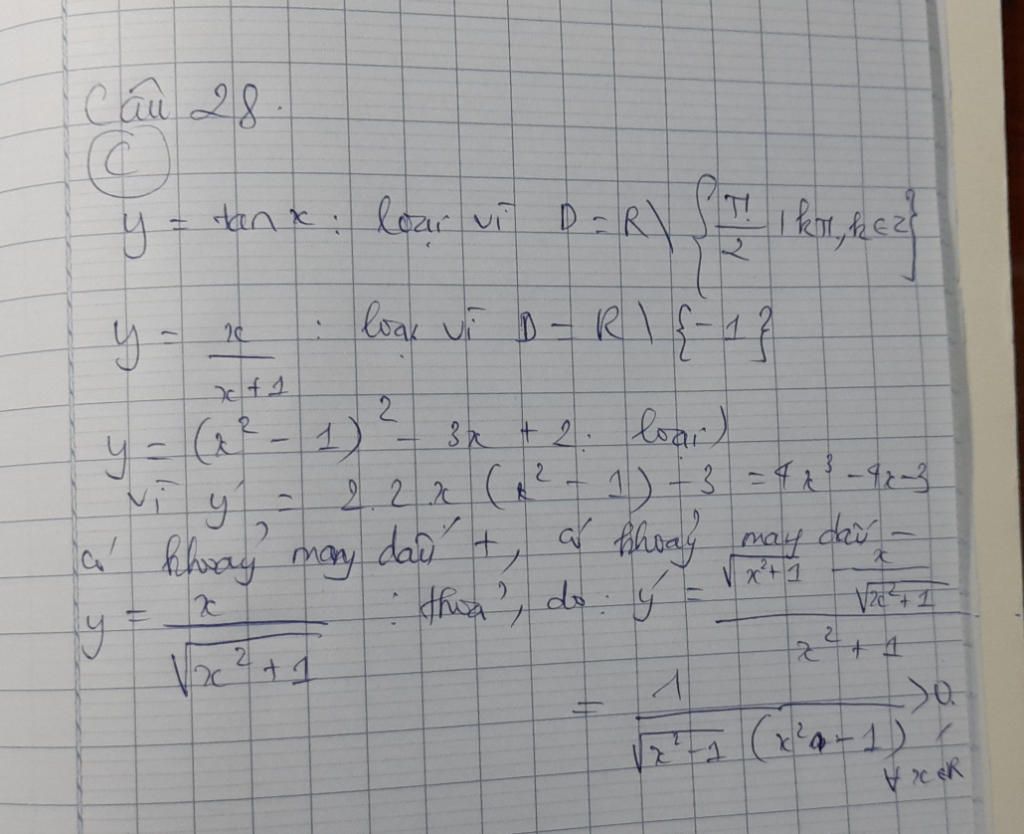 Câu 28.
C
y = tan x : loại vì D = R \ { π/2 + kπ, k ∈ Z }
y = x/(x+1) : loại vì D = R \ {-1}
y = (x² - 1)² - 3x + 2 : loại
vì y' = 2.2.x (x² - 1) - 3 = 4x³ - 4x - 3
có khoảng mang dấu +, có khoảng mang dấu -
y = x/√(x²+1) : thoả, do : y' = (√(x²+1) - x/√(x²+1))/(x² + 1)
= 1/(√(x²-1) (x² - 1)) > 0,
∀ x ∈ R